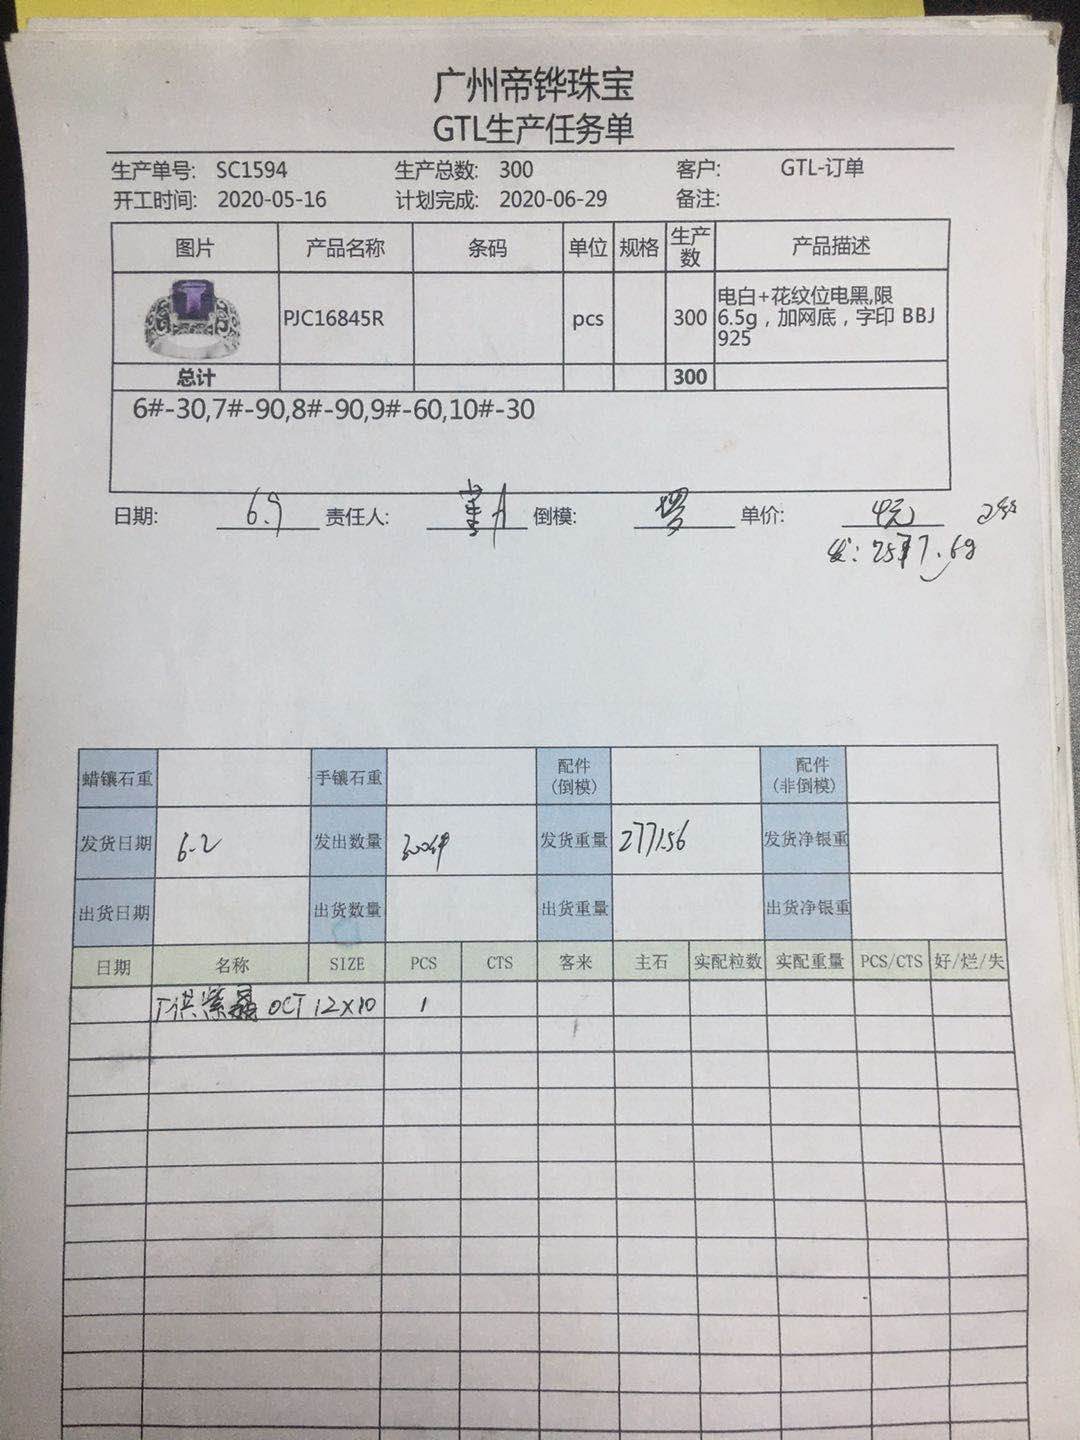 广州帝铧珠宝
GTL生产任务单
生产单号: SC1594 生产总数: 300 客户: GTL-订单
开工时间: 2020-05-16 计划完成: 2020-06-29 备注:
图片 产品名称 条码 单位 规格 生产数 产品描述
PJC16845R pcs 300 电白+花纹位电黑,限
6.5g，加网底，字印 BBJ
925
总计 300
6#-30,7#-90,8#-90,9#-60,10#-30
日期: 6.9 责任人: 倒模: 单价: 4元
蜡镶石重 手镶石重 配件(倒模) 配件(非倒模)
发货日期 6.2 发出数量 300件 发货重量 发货净银重
出货日期 出货数量 出货重量 出货净银重
日期 名称 SIZE PCS CTS 客来 主石 实配粒数 实配重量 PCS/CTS 好/烂/失
OCT 12×10 1